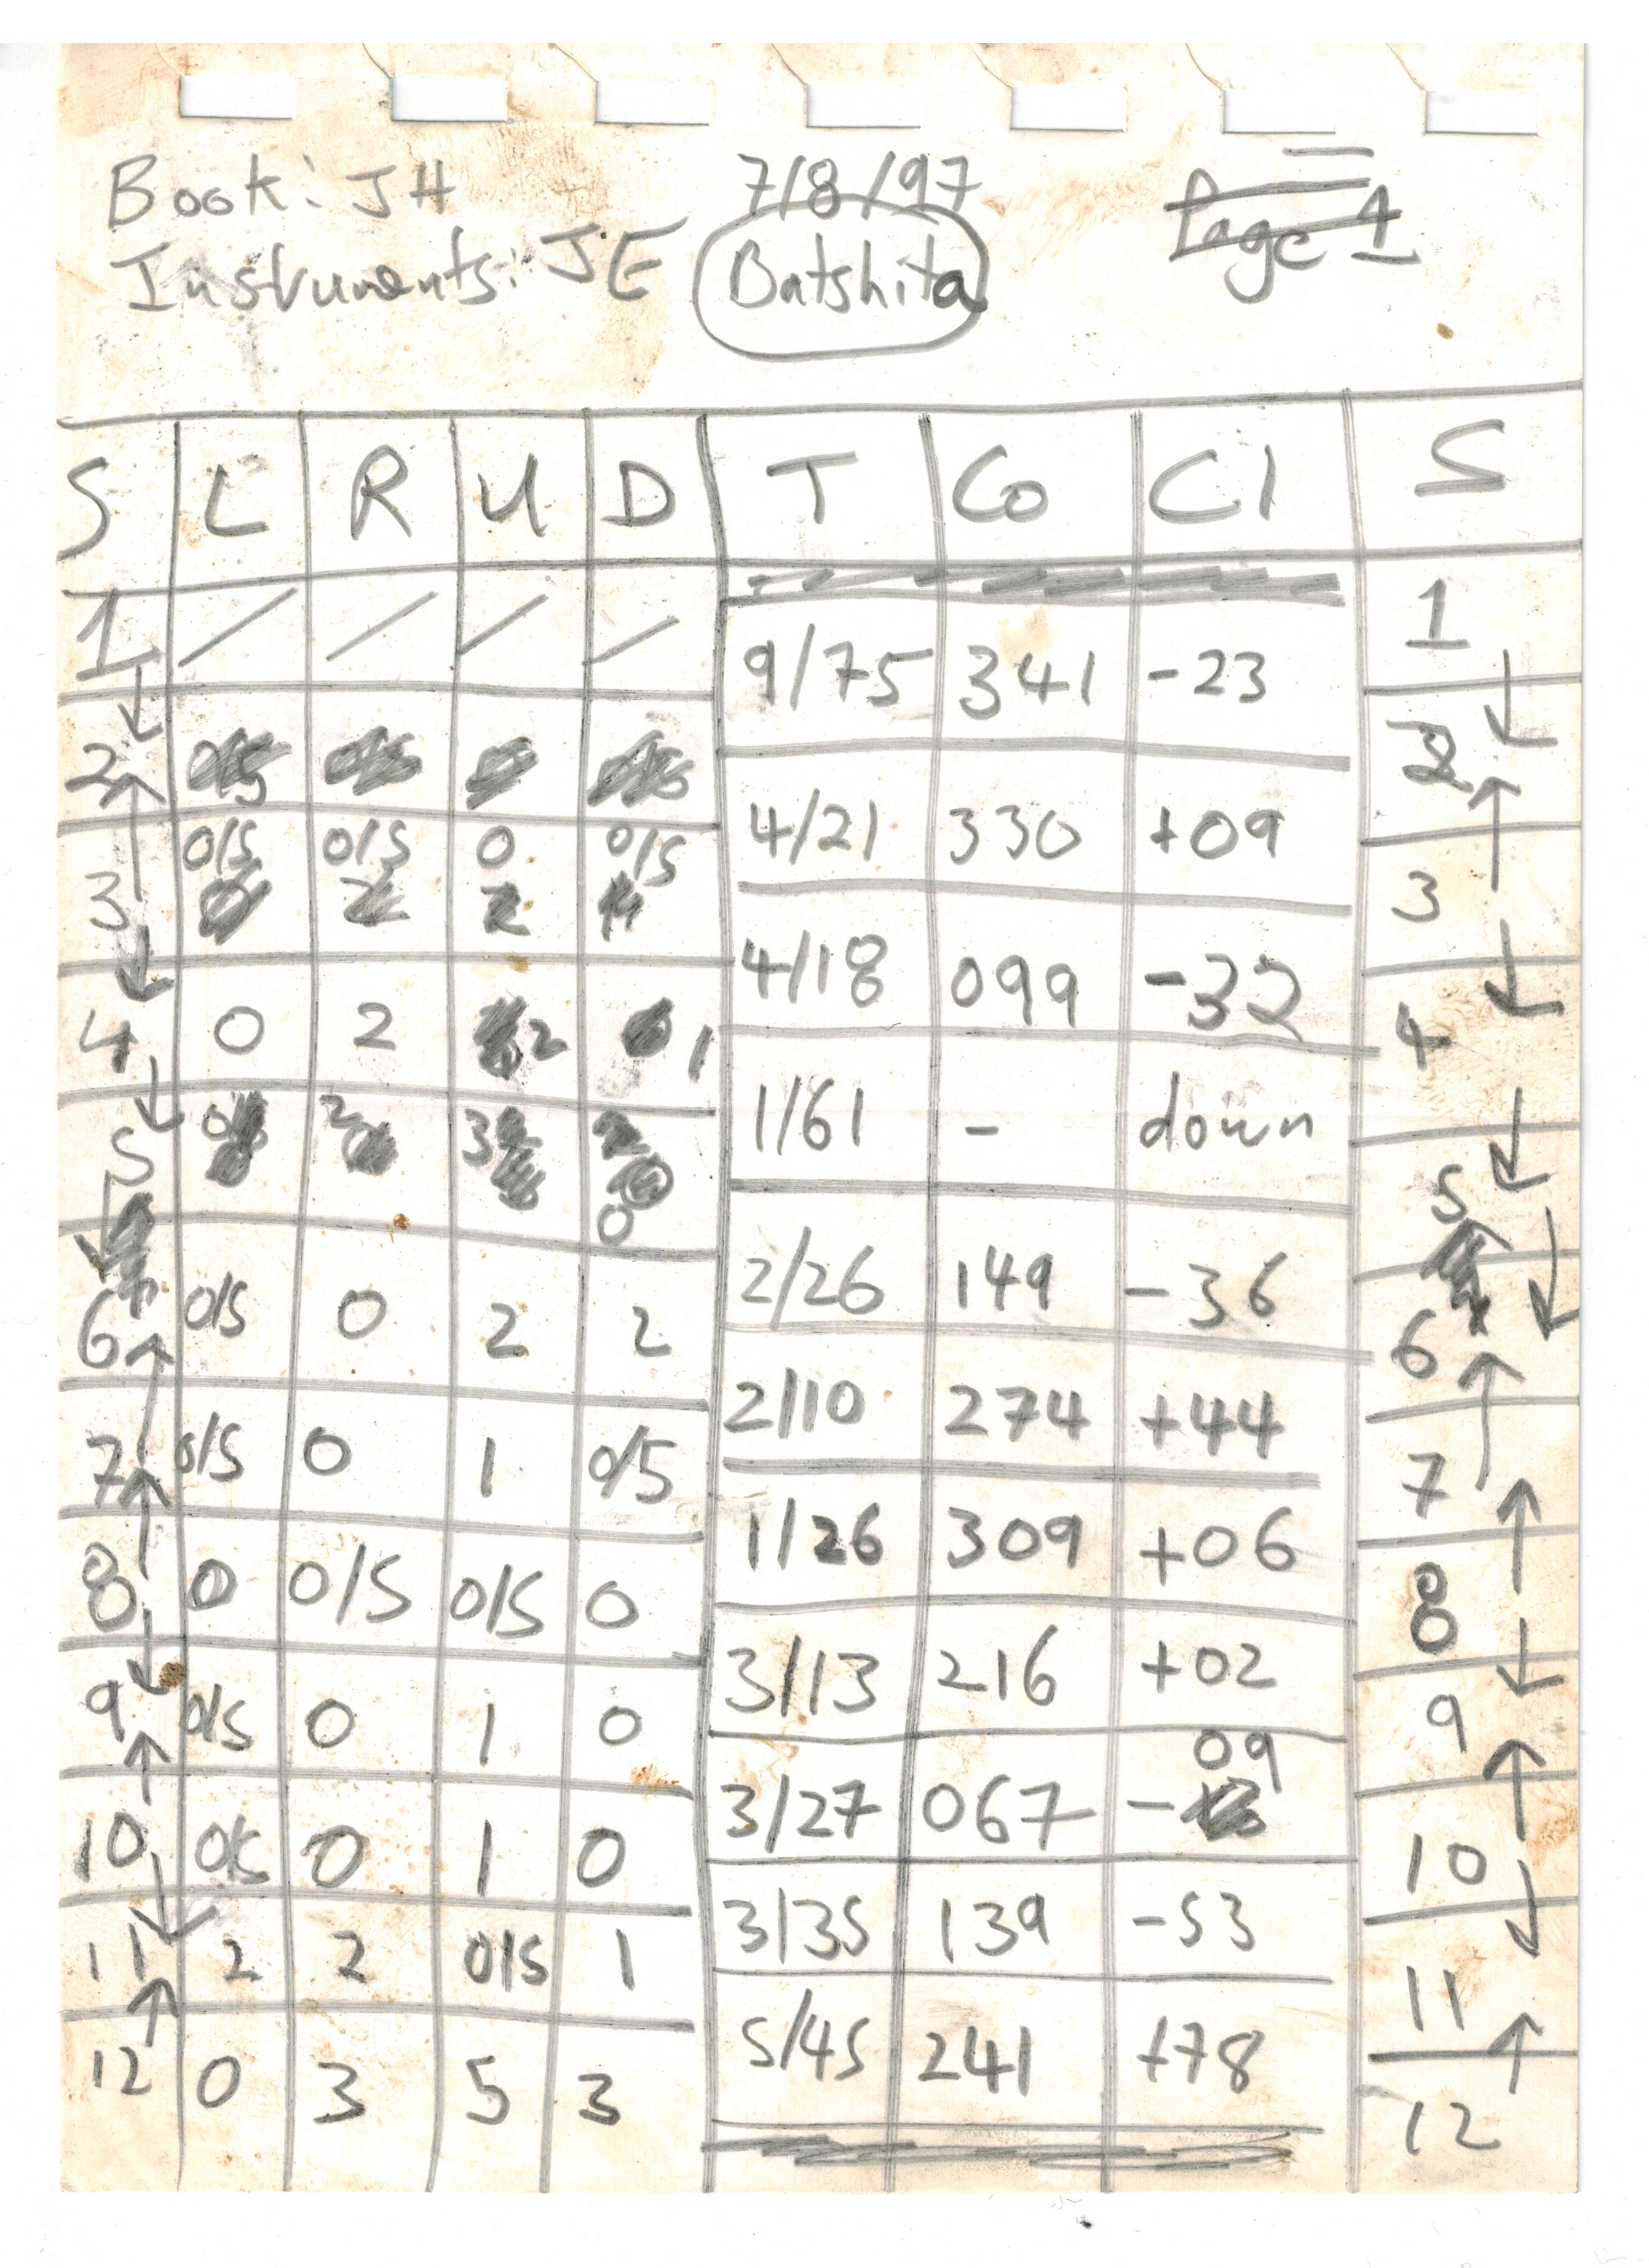 Book: JH 7/8/97 Page 1
Instruments: JE Batshita
S L R U D T Co Cl S
1 / / / / 9/75 341 -23 1
2 4/21 330 +09 2
3 0/S 0/S 0 0/S 4/18 099 -32 3
4 0 2 2 1 1/61 - down 4
5 2 3 0 2/26 149 -36 5
6 0/S 0 2 2 2/10 274 +44 6
7 0/S 0 1 0/5 1/26 309 +06 7
8 0 0/S 0/S 0 3/13 216 +02 8
9 0/S 0 1 0 3/27 067 -09 9
10 0/S 0 1 0 3/35 139 -53 10
11 2 2 0/S 1 5/45 241 +78 11
12 0 3 5 3 12